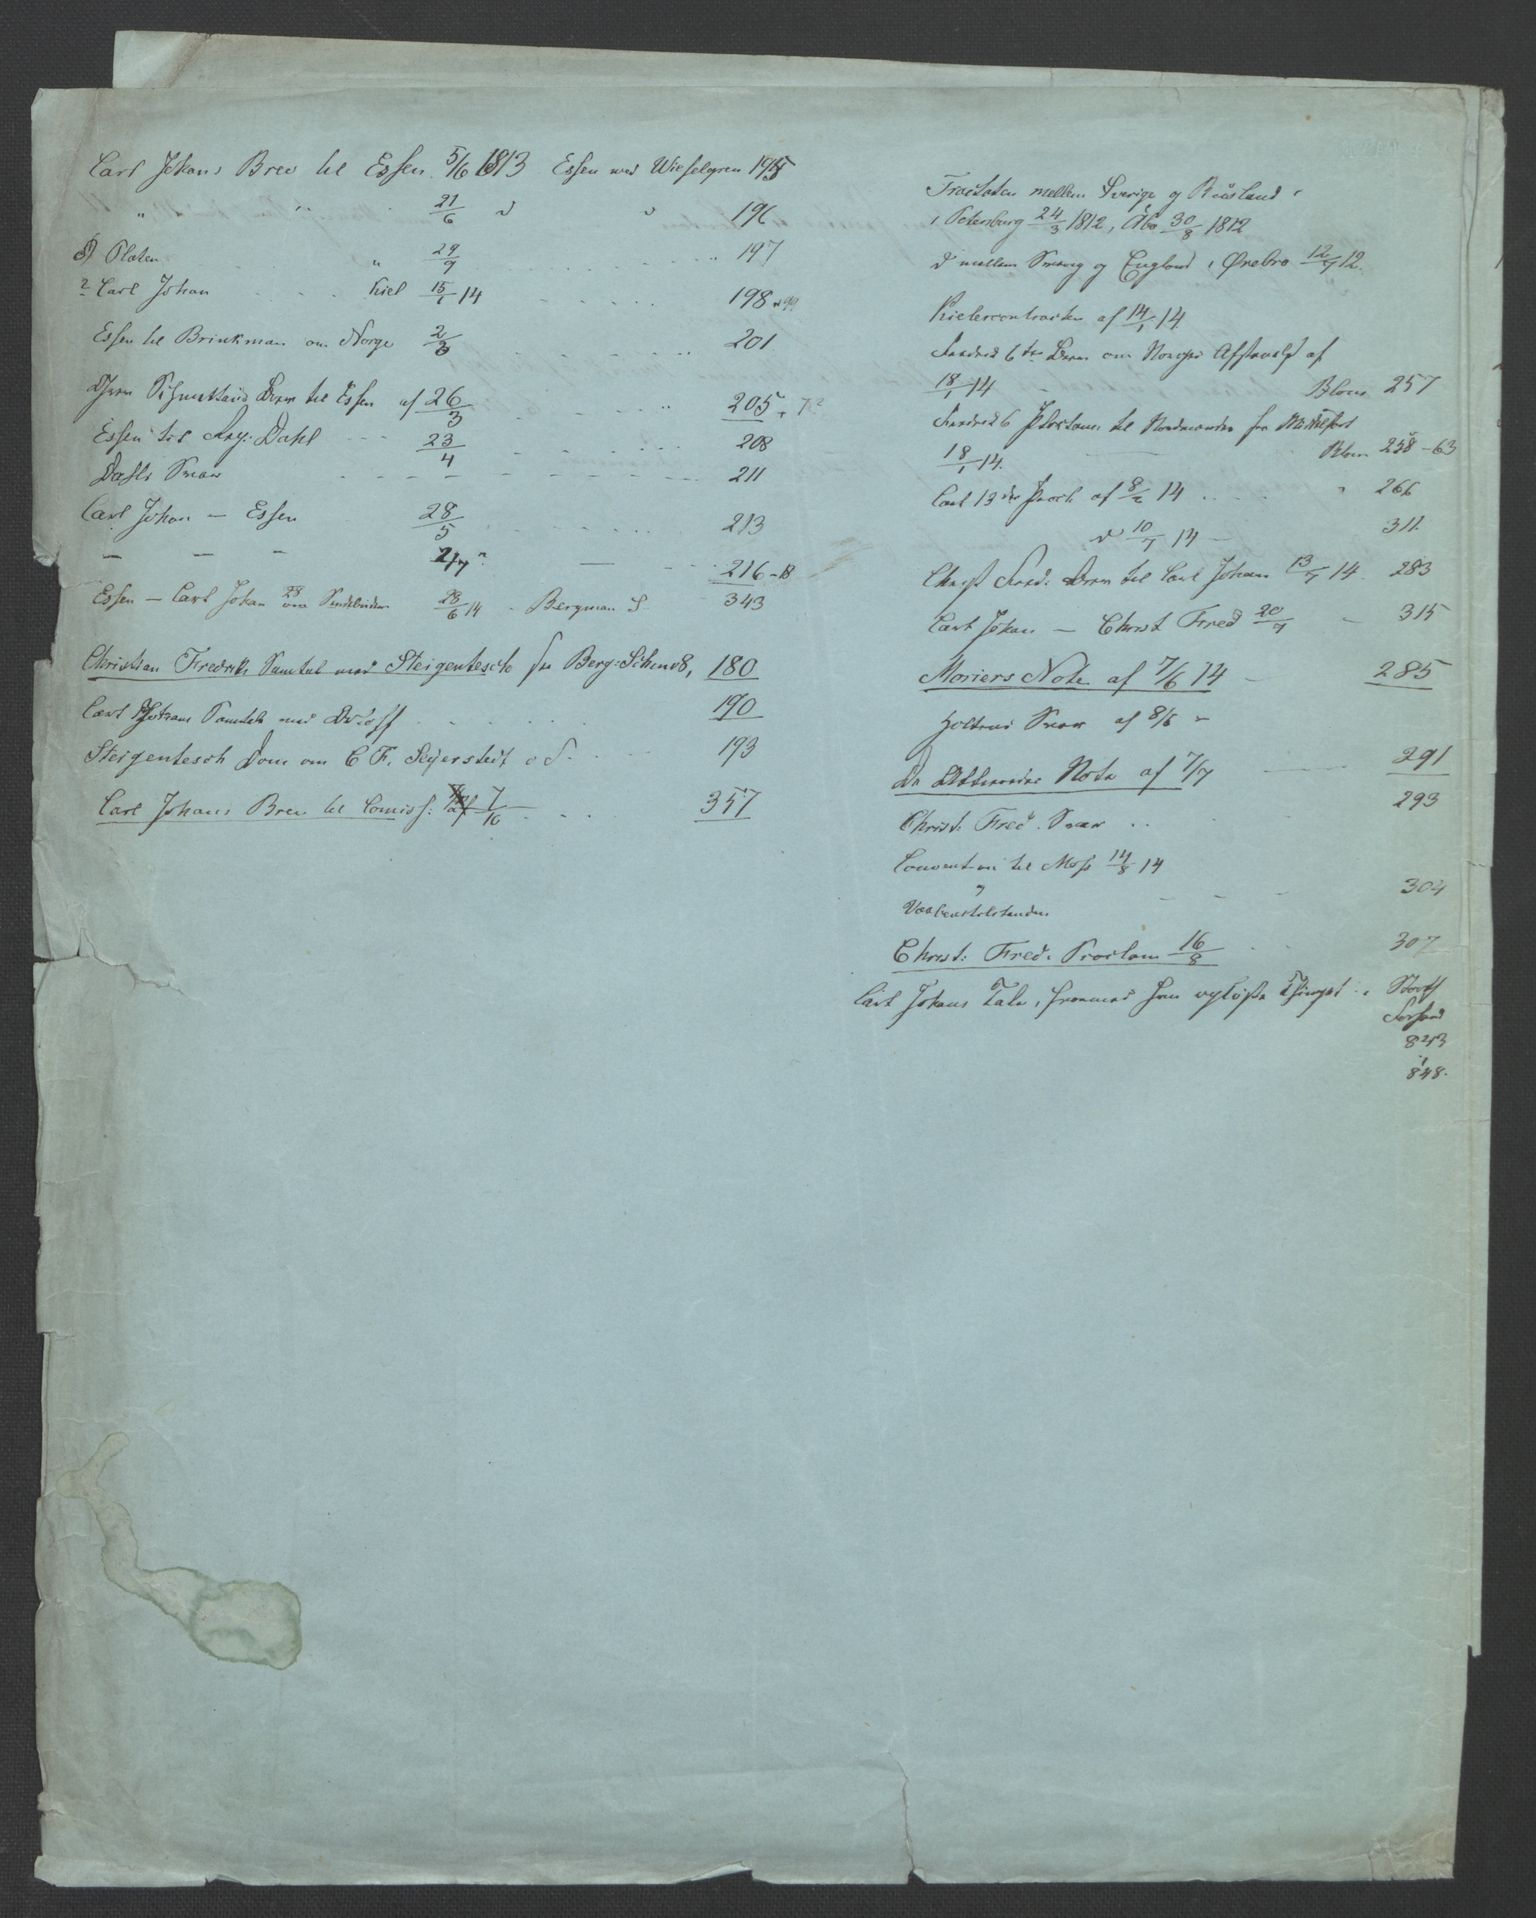 Carl Johans Brev til Essen 5/6 1813 Essen ved Wieselgren 195
" " 21/6 d d 196
Platen " 29/9 197
? Carl Johan Kiel 15/1 14 198 
Essen til Brinkman om Norge 2/3 201
Brev til Essen af 26/3 205
Essen til Dahl 23/4 208
Dahls Svar 211
Carl Johan — Essen 28/5 213
— — — 2/7 — 216-18
Essen — Carl Johan 28/6 14 Bergman S 343
Christian Fredriks Samtal med Steigentesch 180
Carl Johans Samtale med 190
Steigentesch Dom om C F. Sejersted 193
Carl Johans Brev til Comiss: af 7/10 357
Tractaten mellem Sverige og Rusland
i Petersburg 24/3 1812, Åbo 30/8 1812
d mellem og England i Ørebro 12/7 12.
Kielertractaten af 14/1 14
Fredrik 6 te Brev om Norges Afstaaelse af
18/1 14 Blom 257
Fredrik 6 til Nordmænden fra
18/1 14. Blom 258-63
Carl 13 des Prock af 8/2 14 " 266
d 10/7 14 — 311.
Christ Fred. Brev til Carl Johan 13/7 14. 283
Carl Johan — Christ Fred 20/7 — 315
Moriers Note af 7/6 14 — 285
Holtens Svar af 8/6
De Note af 7/7 291
Christ. Fred. Svar 293
Convent-en til Moss 14/8 14
Vaabenstilstanden 304
Christ. Fred. Proclam 16/8 307
Carl Johans Tale, hvormed han Thinget i Storth
Forhand
843
848.